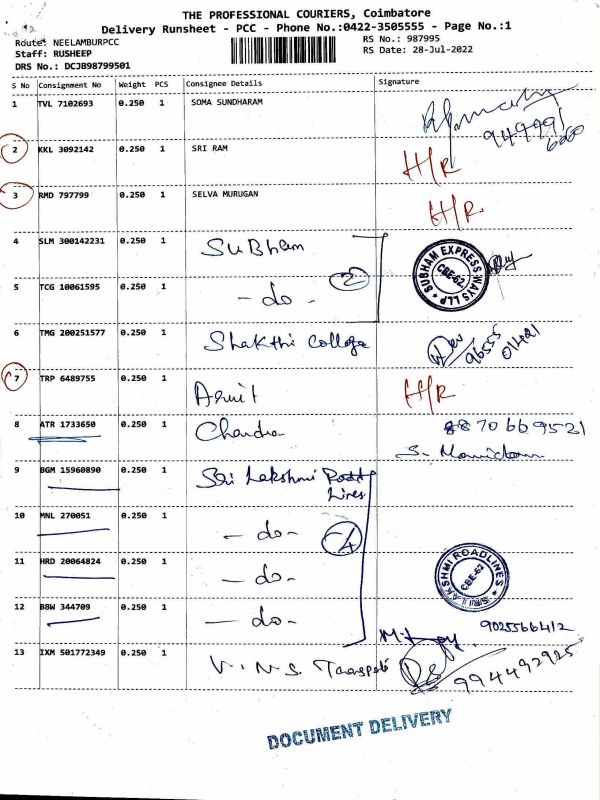 THE PROFESSIONAL COURIERS, Coimbatore
Delivery Runsheet - PCC - Phone No.:0422-3505555 - Page No.:1
Route: NEELAMBURPCC
RS No.: 987995
Staff: RUSHEEP
RS Date: 28-Jul-2022
DRS No.: DCJB98799501
S No Consignment No Weight PCS Consignee Details Signature
1 TVL 7102693 0.250 1 SOMA SUNDHARAM
2 KKL 3092142 0.250 1 SRI RAM H/R
3 RMD 797799 0.250 1 SELVA MURUGAN H/R
4 SLM 300142231 0.250 1 SuBham
SUBHAM EXPRESS WAYS LLP CBE-62
5 TCG 10061595 0.250 1 - do - 2
6 TMG 200251577 0.250 1 Shakthi College
96555
01421
7 TRP 6489755 0.250 1 H/R
8 ATR 1733650 0.250 1 Chandra 8870669521
9 BGM 15960890 0.250 1 Sri Lakshmi Road
Lines
10 MNL 270051 0.250 1 - do - 4
11 HRD 20064824 0.250 1 - do -
SRI LAKSHMI ROADLINES CBE-62
12 BBW 344709 0.250 1 - do -
9025566412
13 IXM 501772349 0.250 1 V.N.S. 994492925
DOCUMENT DELIVERY